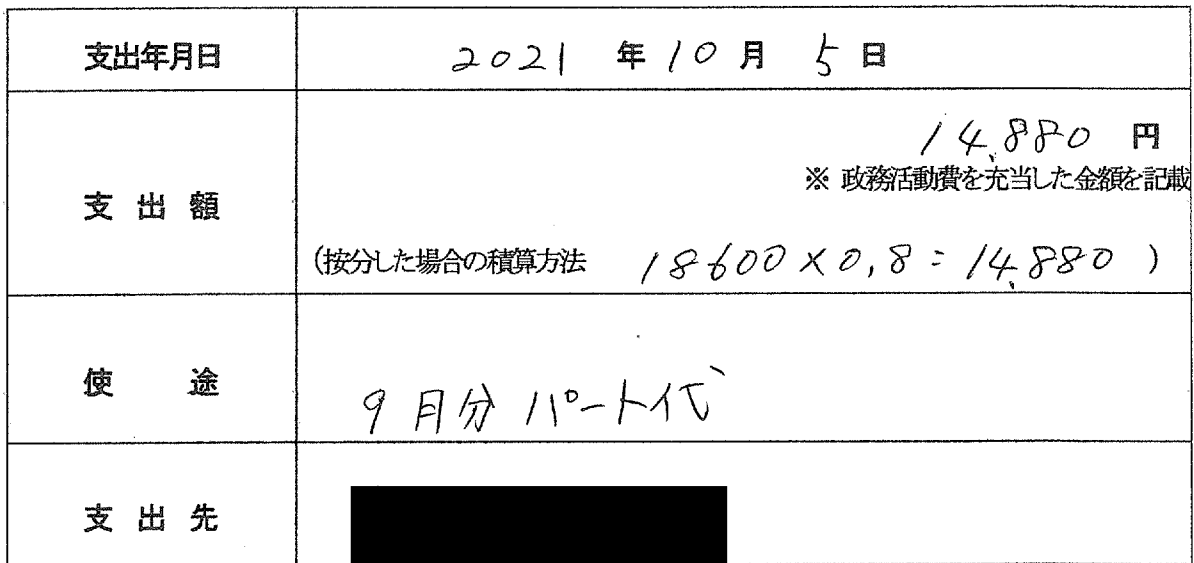 支出年月日 2021 年 10 月 5 日
14,880 円
※ 政務活動費を充当した金額を記載
支出額
(按分した場合の積算方法 18600×0,8=14,880 )
使途 9月分 パート代
支出先